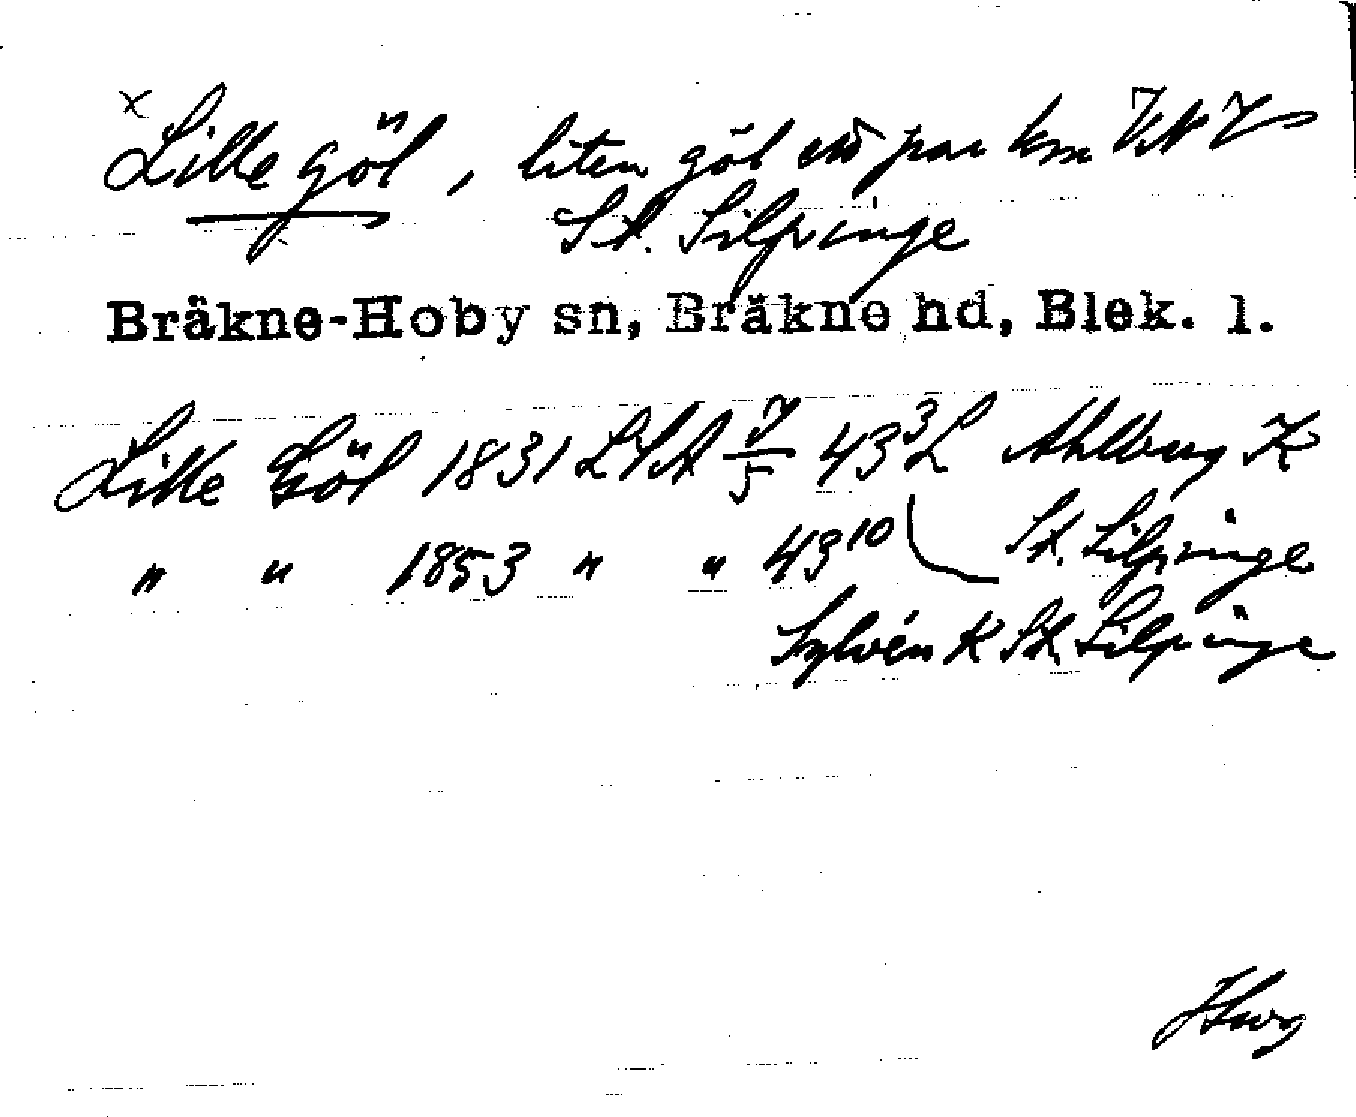 x Lille göl, liten göl ett par km VNV
St. Silpinge
Bräkne-Hoby sn, Bräkne hd, Blek. l.
Lille Göl 1831 LSA 7/5 43³ L Ahlberg K
" " 1853 " " 43¹⁰ St. Silpinge
Sylvén K St. Silpinge